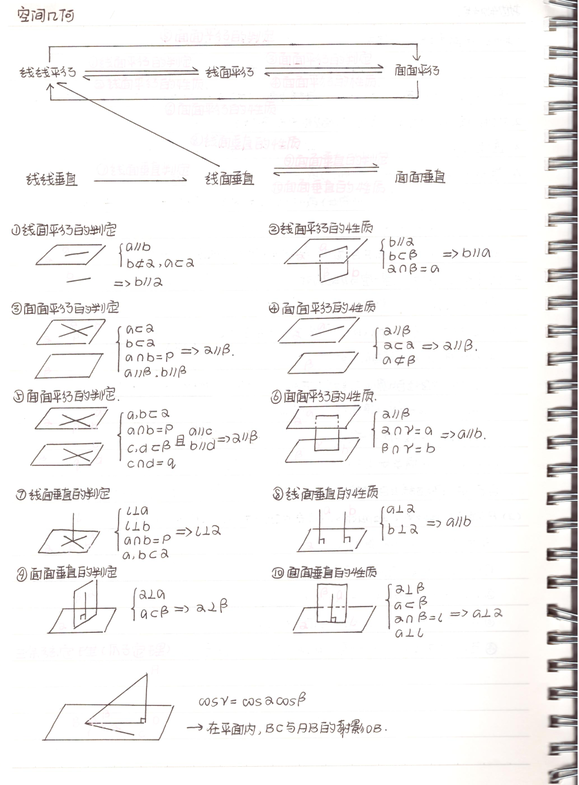 空间几何
线线平行 线面平行 面面平行
线线垂直 线面垂直 面面垂直
①线面平行的判定
a∥b
b⊄2, a⊂2
=> b∥2
②线面平行的性质
b∥2
b⊂β => b∥a
2∩β=a
③面面平行的判定
a⊂2
b⊂2
a∩b=P => 2∥β.
a∥β.b∥β
④面面平行的性质
2∥β
a⊂2 => 2∥β.
a⊄β
⑤面面平行的判定.
a,b⊂2
a∩b=P
c,d⊂β 且 a∥c b∥d => 2∥β
c∩d=q
⑥面面平行的性质.
2∥β
2∩γ=a => a∥b.
β∩γ=b
⑦线面垂直的判定
l⊥a
l⊥b
a∩b=P => l⊥2
a,b⊂2
⑧线面垂直的性质
a⊥2
b⊥2 => a∥b
⑨面面垂直的判定
2⊥a
a⊂β => 2⊥β
⑩面面垂直的性质
2⊥β
a⊂β
2∩β=l => a⊥2
a⊥l
cosγ=cos2cosβ
→在平面内,BC与AB的射影OB.